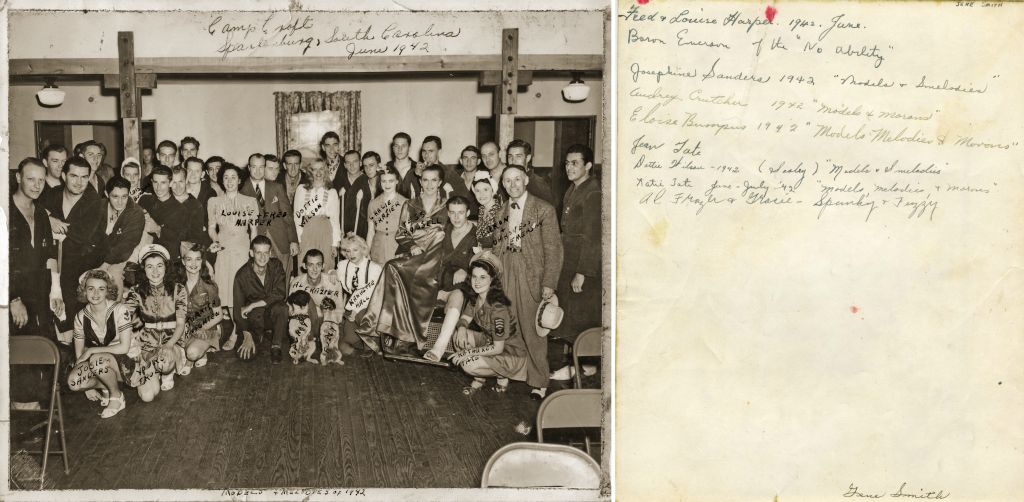 Camp Croft
Spartanburg, South Carolina
June 1942
LOUISE & FRED
HARPER
DOTTIE
WILSON
AL FRAZIER
HALL
EMERSON
JOSIE
SANDERS
YOURS
TRULY
KATHRYN
TATE
MODELS & MELODIES of 1942
JENE SMITH
Fred & Louise Harper. 1942. June.
Baron Emerson of the "No ability"
Josephine Sanders 1942 "Models & Smelodies"
Audrey Crutcher 1942 "Models & Morons"
Eloise Bumpus 1942 "Models Melodies & Morons"
Jean Tate
Dottie Wilson - 1942 (Sealey) "Models & Smelodies"
Katie Tate June - July '42 "Models, melodies, & morons"
Al Frazier & Gracie - Spunky & Fuzzy
Jene Smith